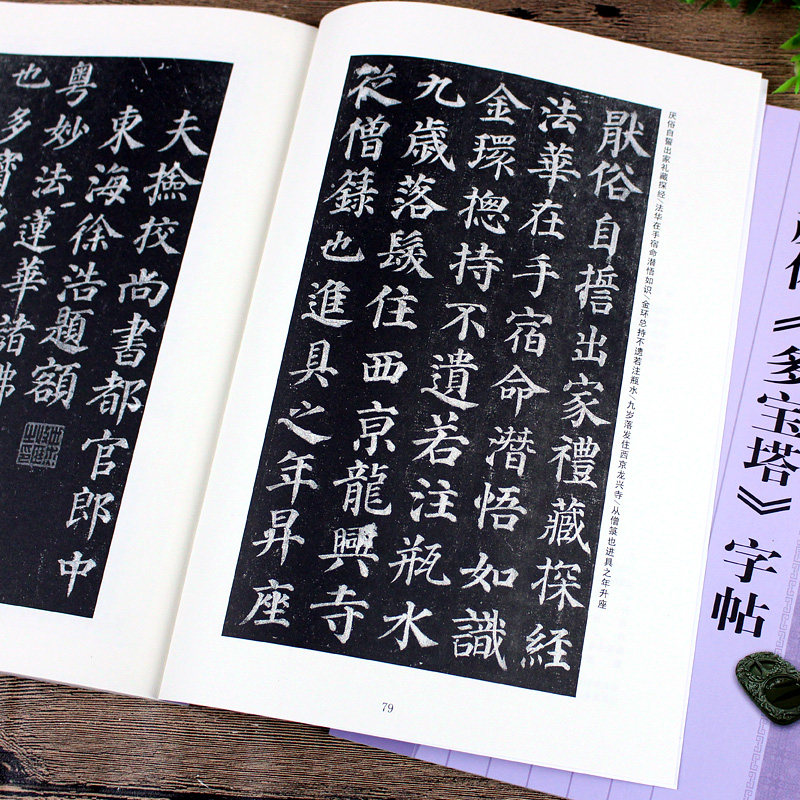 猒俗自誓出家禮藏探經
法華在手宿命潛悟如識
金環揔持不遺若注瓶水
九歲落髮住西京龍興寺
從僧籙也進具之年昇座
厌俗自誓出家礼藏探经/法华在手宿命潜悟如识/金环总持不遗若注瓶水/九岁落发住西京龙兴寺/从僧箓也进具之年升座
79
夫撿挍尚書都官郎中
東海徐浩題額
粵妙法蓮華諸佛
也多寶
《多宝塔》字帖